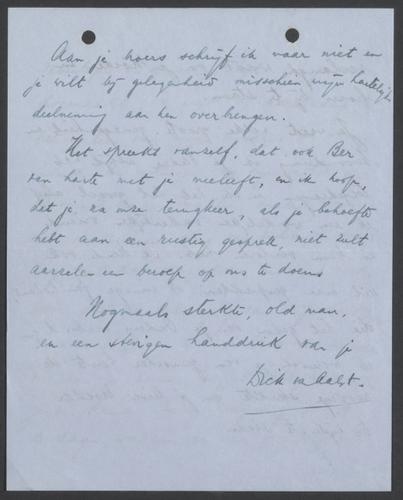 Aan je broers schrijf ik maar niet en
je wilt bij gelegenheid misschien mijn hartelijke
deelneming aan hen overbrengen.
Het spreekt vanzelf, dat ook Ber
van harte met je meeleeft, en ik hoop,
dat je na onze terugkeer, als je behoefte
hebt aan een rustig gesprek, niet zult
aarzelen een beroep op ons te doen.
Nogmaals sterkte, old man,
en een stevigen handdruk van je
Dick van Aalst.